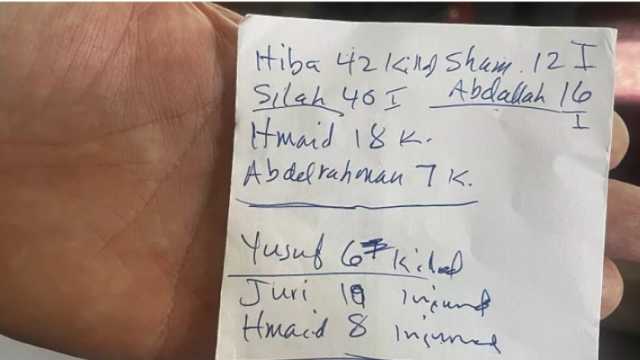 Hiba 42 Killed Sham. 12 I
Silah 40 I Abdallah 16
I
Hmaid 18 K.
Abdelrahman 7 K.
Yusuf 6 Killed
Juri injured
Hmaid 8 injured